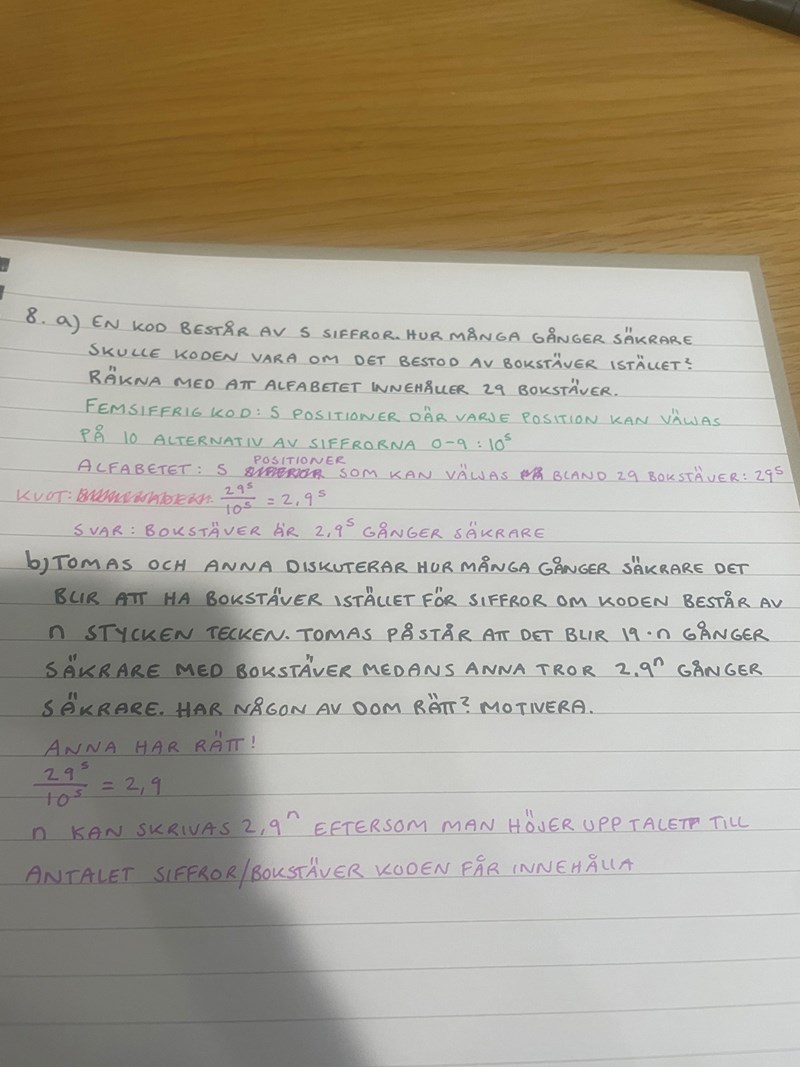 8. a) EN KOD BESTÅR AV 5 SIFFROR. HUR MÅNGA GÅNGER SÄKRARE
SKULLE KODEN VARA OM DET BESTOD AV BOKSTÄVER ISTÄLLET?
RÄKNA MED ATT ALFABETET INNEHÅLLER 29 BOKSTÄVER.
FEMSIFFRIG KOD: 5 POSITIONER DÄR VARJE POSITION KAN VÄLJAS
PÅ 10 ALTERNATIV AV SIFFRORNA 0-9: 10⁵
ALFABETET: 5 POSITIONER SOM KAN VÄLJAS BLAND 29 BOKSTÄVER: 29⁵
KVOT: 29⁵/10⁵ = 2,9⁵
SVAR: BOKSTÄVER ÄR 2,9⁵ GÅNGER SÄKRARE
b) TOMAS OCH ANNA DISKUTERAR HUR MÅNGA GÅNGER SÄKRARE DET
BLIR ATT HA BOKSTÄVER ISTÄLLET FÖR SIFFROR OM KODEN BESTÅR AV
n STYCKEN TECKEN. TOMAS PÅSTÅR ATT DET BLIR 19·n GÅNGER
SÄKRARE MED BOKSTÄVER MEDANS ANNA TROR 2,9ⁿ GÅNGER
SÄKRARE. HAR NÅGON AV DOM RÄTT? MOTIVERA.
ANNA HAR RÄTT!
29⁵/10⁵ = 2,9
n KAN SKRIVAS 2,9ⁿ EFTERSOM MAN HÖJER UPP TALET TILL
ANTALET SIFFROR/BOKSTÄVER KODEN FÅR INNEHÅLLA